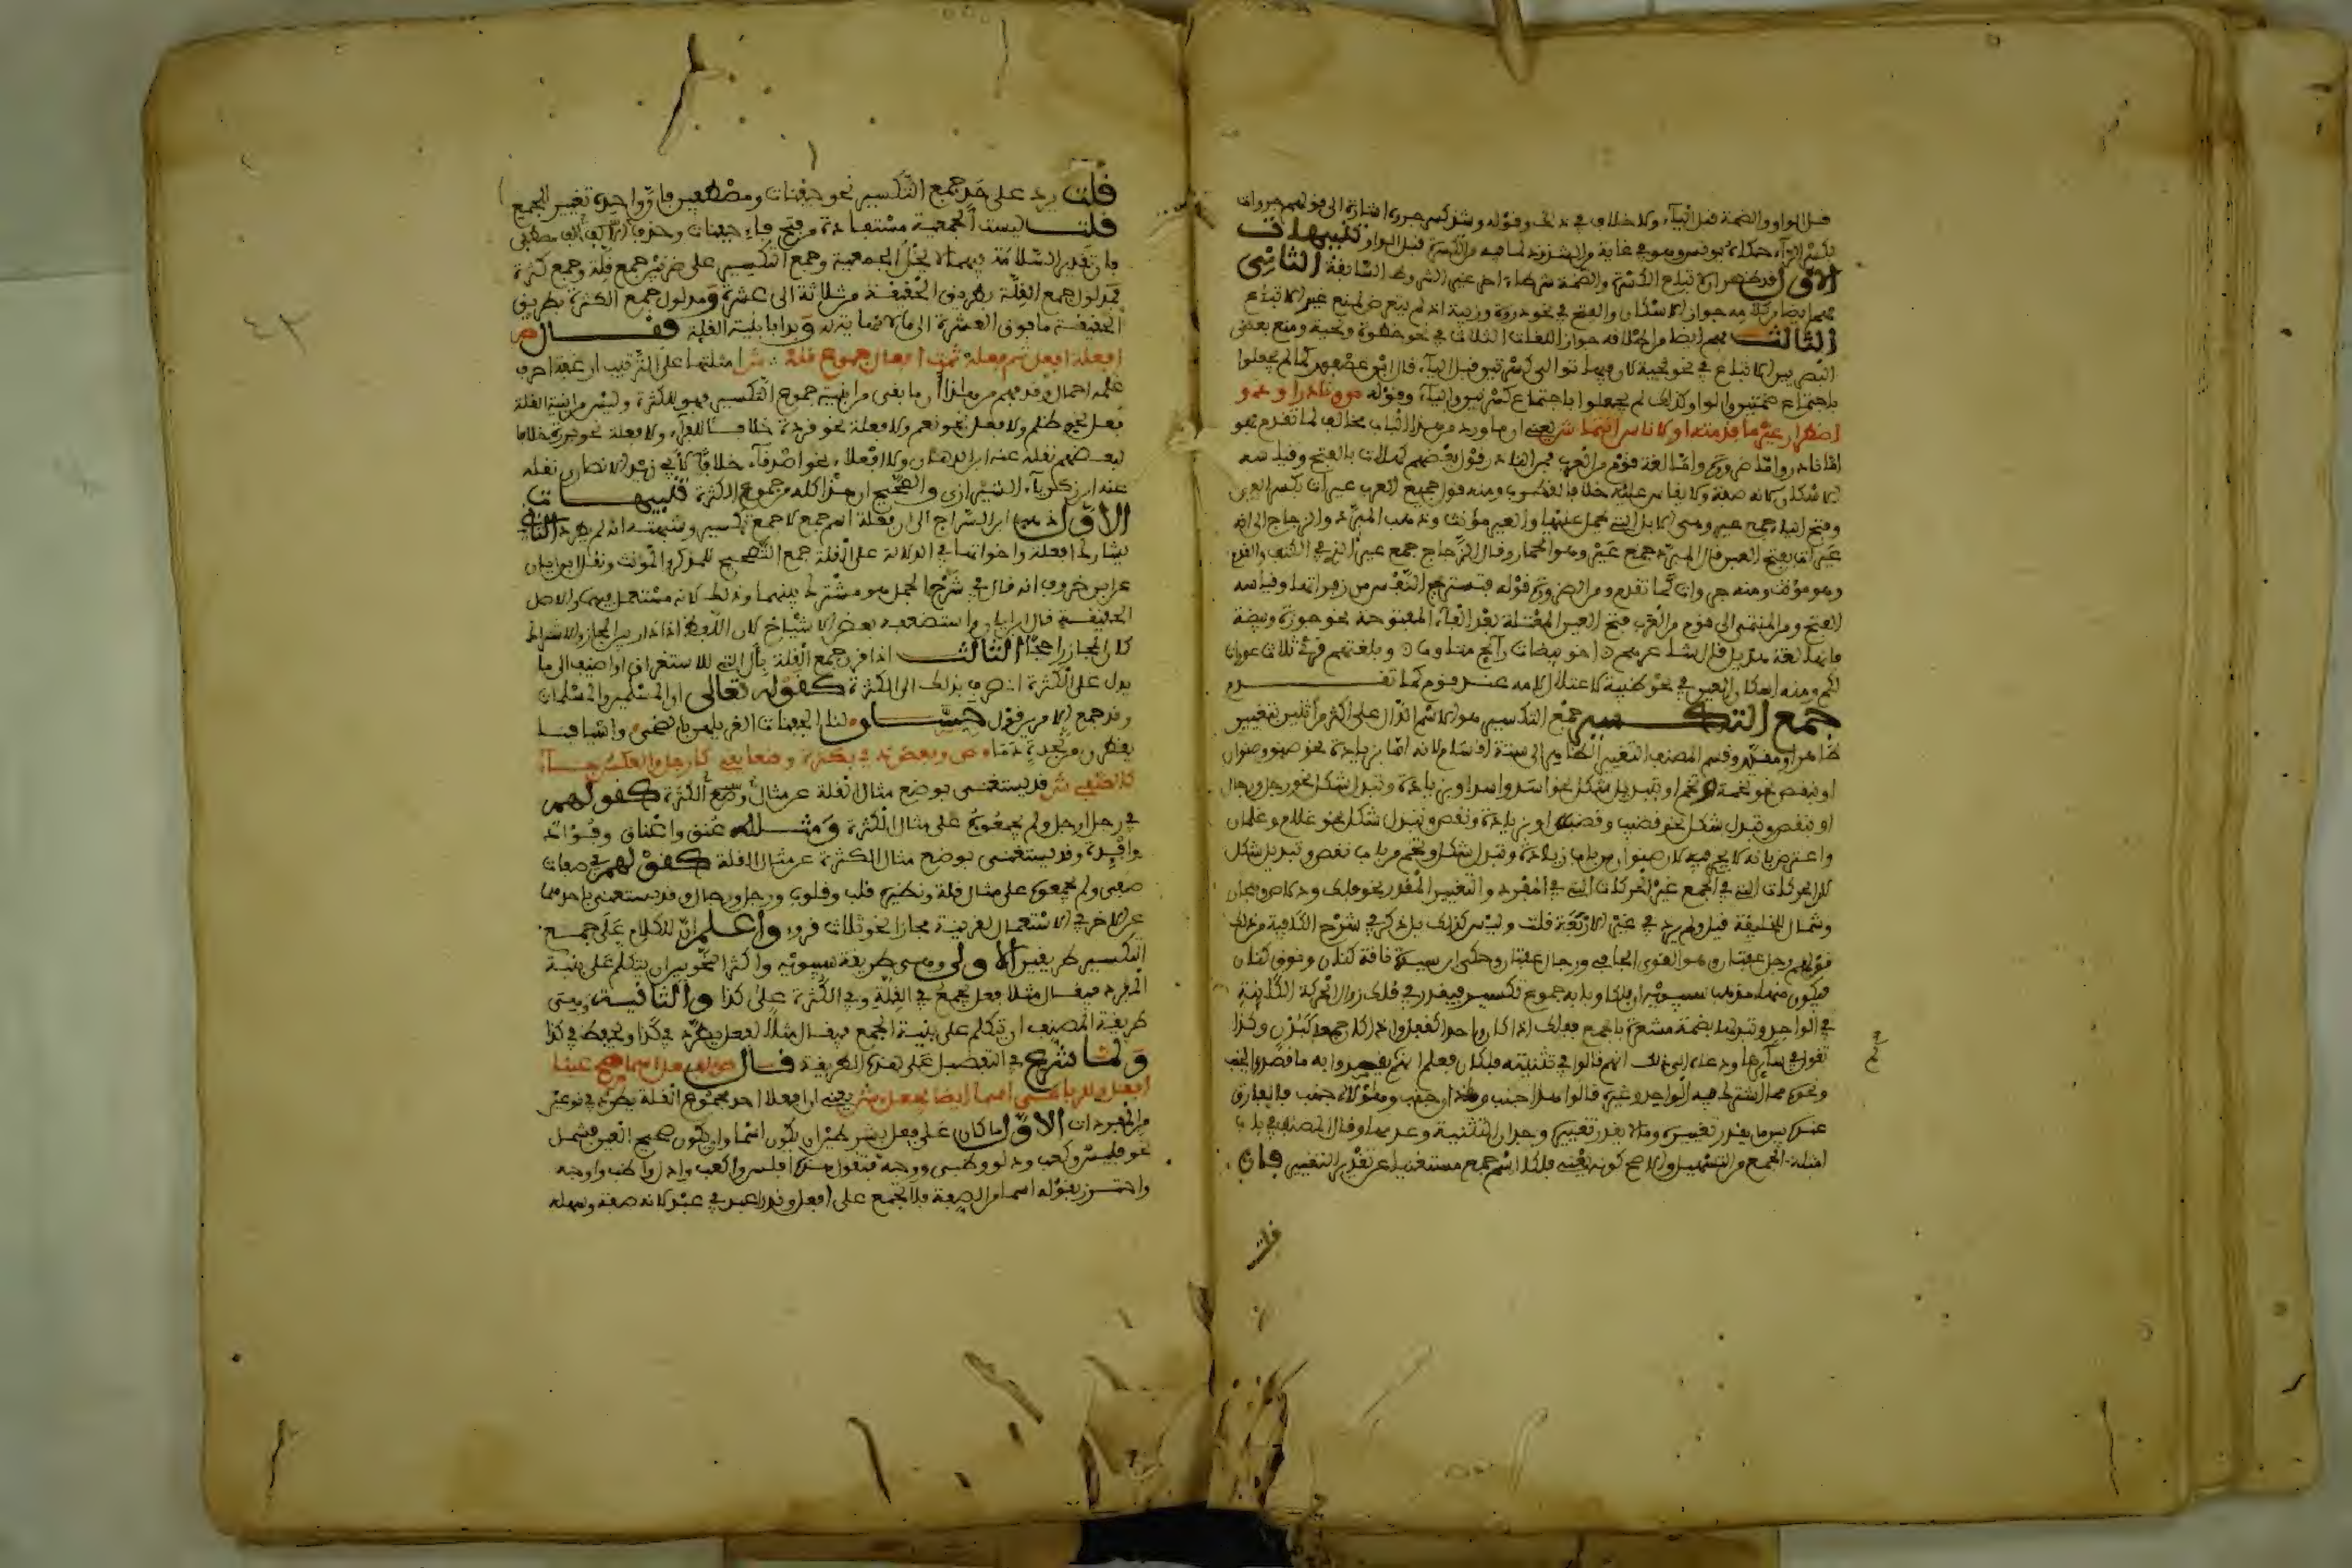 قبل الواو والضمة قبل الياء ولا خلاف في ذلك وقوله وشذ كسر جروه اشارة الى قولهم جروات
بكسر الراء حكاه يونس وهو في غاية من الشذوذ لما فيه من الكسرة قبل الواو تنبيهات
الاول قد ظهر ان لاتباع الكسرة والضمة شرطا اخر غير الشروط السابقة الثاني
فهم ايضا من كلامه جواز الاسكان والفتح في نحو ذروة وزبية اذ لم يتعرض لمنع غير الاتباع
الثالث فهم ايضا من اطلاقه جواز اللغات الثلاث في نحو خطوة ولحية ومنع بعض
البصريين الاتباع في نحو لحية لان فيه توالي كسرتين قبل الياء قال ابن عصفور كما لم يحفلوا
باجتماع ضمتين والواو كذلك لم يحفلوا باجتماع كسرتين والياء وقوله ص ونادر او ذو
اضطرار غير ما قدمته او لاناس انتمى ش يعني ان ما ورد من هذا الباب مخالف لما تقدم فهو
اما نادر واما ضرورة واما لغة قوم من العرب فمن النادر قول بعضهم كهلات بالفتح وقياسه
الاسكان لانه صفة ولا يقاس عليه خلافا لقطرب ومنه قول جميع العرب عيرات بكسر العين
وفتح الياء جمع عير وهي الابل التي تحمل عليها والعير مؤنث وذهب المبرد والزجاج الى انه
عيرات بفتح العين قال المبرد جمع عير وهو الحمار وقال الزجاج جمع عير الذي في الكتف والقدم
وهو مؤنث ومنه جروات كما تقدم ومن الضرورة قوله فتستريح النفس من زفراتها وقياسه
الفتح ومن المنتمي الى قوم من العرب فتح العين المعتلة بعد الفاء المفتوحة نحو جوزة وبيضة
فانها لغة هذيل قال الشاعر اخو بيضات رائح متاوب وبلغتهم قرئ ثلاث عورات
لكم ومنه اسكان العين في نحو ظبية لاعتلال لامه عند قوم كما تقدم
جمع التكسير جمع التكسير هو الاسم الدال على اكثر من اثنين بتغيير
ظاهر او مقدر وقسم المصنف التغيير الظاهر الى ستة اقسام لانه اما بزيادة نحو صنو وصنوان
او بنقص نحو تخمة وتخم او تبديل شكل نحو اسد واسد او بزيادة وتبدل شكل نحو رجل ورجال
او بنقص وتبدل شكل نحو قضيب وقضب او بزيادة ونقص وتبدل شكل نحو غلام وغلمان
واعترض بانه لا تحرير فيه لان صنوان من باب زيادة وتبدل شكل وتخم من باب نقص وتبديل شكل
لان الحركات التي في الجمع غير الحركات التي في المفرد والتغيير المقدر نحو فلك ودلاص وهجان
وشمال للخليقة قيل ولم يرد في غير الاربعة قلت وليس كذلك بل ذكر في شرح الكافية من ذلك
قولهم رجل عفتان وهو القوي الجافي ورجال عفتان وحكى ابن سيدة ناقة كناز ونوق كناز
فيكون منها ومذهب سيبويه ان فلكا وبابه جموع تكسير فيقدر في فلك زوال الحركة الكائنة
في الواحد وتبدلها بضمة مشعرة بالجمع ففلك اذا كان واحدا كقفل واذا كان جمعا كبدن وكذا
تقول في سائرها ودعاه الى ذلك انهم قالوا في تثنيته فلكان فعلم انهم لم يقصدوا به ما قصدوا بجنب
ونحوه مما اشترك فيه الواحد وغيره قالوا هذا جنب وهذان جنب وهؤلاء جنب فالفارق
عنده بين ما يقدر تغييره وما لا يقدر تغييره وجدان التثنية وعدمها وقال المصنف في باب
امثلة الجمع من التسهيل والاصح كونه يعني فلكا اسم جمع مستغنيا عن تقدير التغيير فان
قلت
قلت يرد على حد جمع التكسير نحو جفنات ومصطفين فان واحده تغير للجمع
قلت ليست الجمعية مستفادة من فتح فاء جفنات وحذف الف مصطفى
فان تقدير السلامة فيهما لا يخل بالجمعية وجمع التكسير على ضربين جمع قلة وجمع كثرة
فمدلول جمع القلة بطريق الحقيقة من ثلاثة الى عشرة ومدلول جمع الكثرة بطريق
الحقيقة ما فوق العشرة الى ما لا نهاية له وبدا بابنية القلة فقال ص
افعلة افعل ثم فعلة ثمت افعال جموع قلة ش امثلتها على الترتيب ارغفة احرف
غلمة احمال وقد فهم من هذا ان ما بقي من ابنية جموع التكسير فهو للكثرة وليس من ابنية القلة
فعل نحو ظلم ولا فعل نحو نعم ولا فعلة نحو قردة خلافا للفراء ولا فعلة نحو بررة خلافا
لبعضهم نقله عنه ابن الدهان ولا افعلاء نحو اصدقاء خلافا لابي زيد الانصاري نقله
عنه ابو زكرياء الشيرازي والصحيح ان هذا كله من جموع الكثرة تنبيهات
الاول ذهب ابن السراج الى ان فعلة اسم جمع لا جمع تكسير وشبهته انه لم يطرد الثاني
يشارك افعلة واخواتها في الدلالة على القلة جمع التصحيح للمذكر والمؤنث ونقل ابن اياز
عن ابن خروف انه قال في شرح الجمل هو مشترك بينهما وذلك لانه مستعمل فيهما والاصل
الحقيقة قال ابن اياز واستضعفه بعض الاشياخ لان اللفظ اذا دار بين المجاز والاشتراك
كان المجاز راجحا الثالث اذا قرن جمع القلة بال التي للاستغراق او اضيف الى ما
يدل على الكثرة انصرف بذلك الى الكثرة كقوله تعالى ان المسلمين والمسلمات
وقد جمع الامرين قول حسان لنا الجفنات الغر يلمعن بالضحى واسيافنا
يقطرن من نجدة دما ص وبعض ذي بكثرة وضعا يفي كارجل والعكس جاء
كالصفي ش قد يستغنى بوضع مثال القلة عن مثال وضع الكثرة كقولهم
في رجل ارجل ولم يجمعوه على مثال الكثرة ومثله عنق واعناق وفؤاد
وافئدة وقد يستغنى بوضع مثال الكثرة عن مثال القلة كقولهم في صفاة
صفى ولم يجمعوه على مثال قلة ونظيره قلب وقلوب ورجل ورجال وقد يستغنى باحدهما
عن الاخر في الاستعمال لقرينة مجازا نحو ثلاثة قروء واعلم ان للكلام على جمع
التكسير طريقين الاولى وهي طريقة سيبويه واكثر النحويين ان يتكلم على بنية
المفرد فيقال مثلا فعل يجمع في القلة وفي الكثرة على كذا والثانية وهي
طريقة المصنف ان يتكلم على بنية الجمع فيقال مثلا افعل يطرد في كذا ويحفظ في كذا
ولما شرع في التفصيل على هذه الطريقة قال ص لفعل اسما صح عينا
افعل وللرباعي اسما ايضا يجعل ش يعني ان افعلا احد جموع القلة يطرد في نوعين
من المفردات الاول ما كان على فعل بشرطين ان يكون اسما وان يكون صحيح العين فشمل
نحو فلس وكعب ودلو وظبي ووجه فتقول في هذه افلس واكعب وادل واظب واوجه
واحترز بقوله اسما من الصفة فلا تجمع على افعل وندر اعبد في عبد لانه صفة وسهله